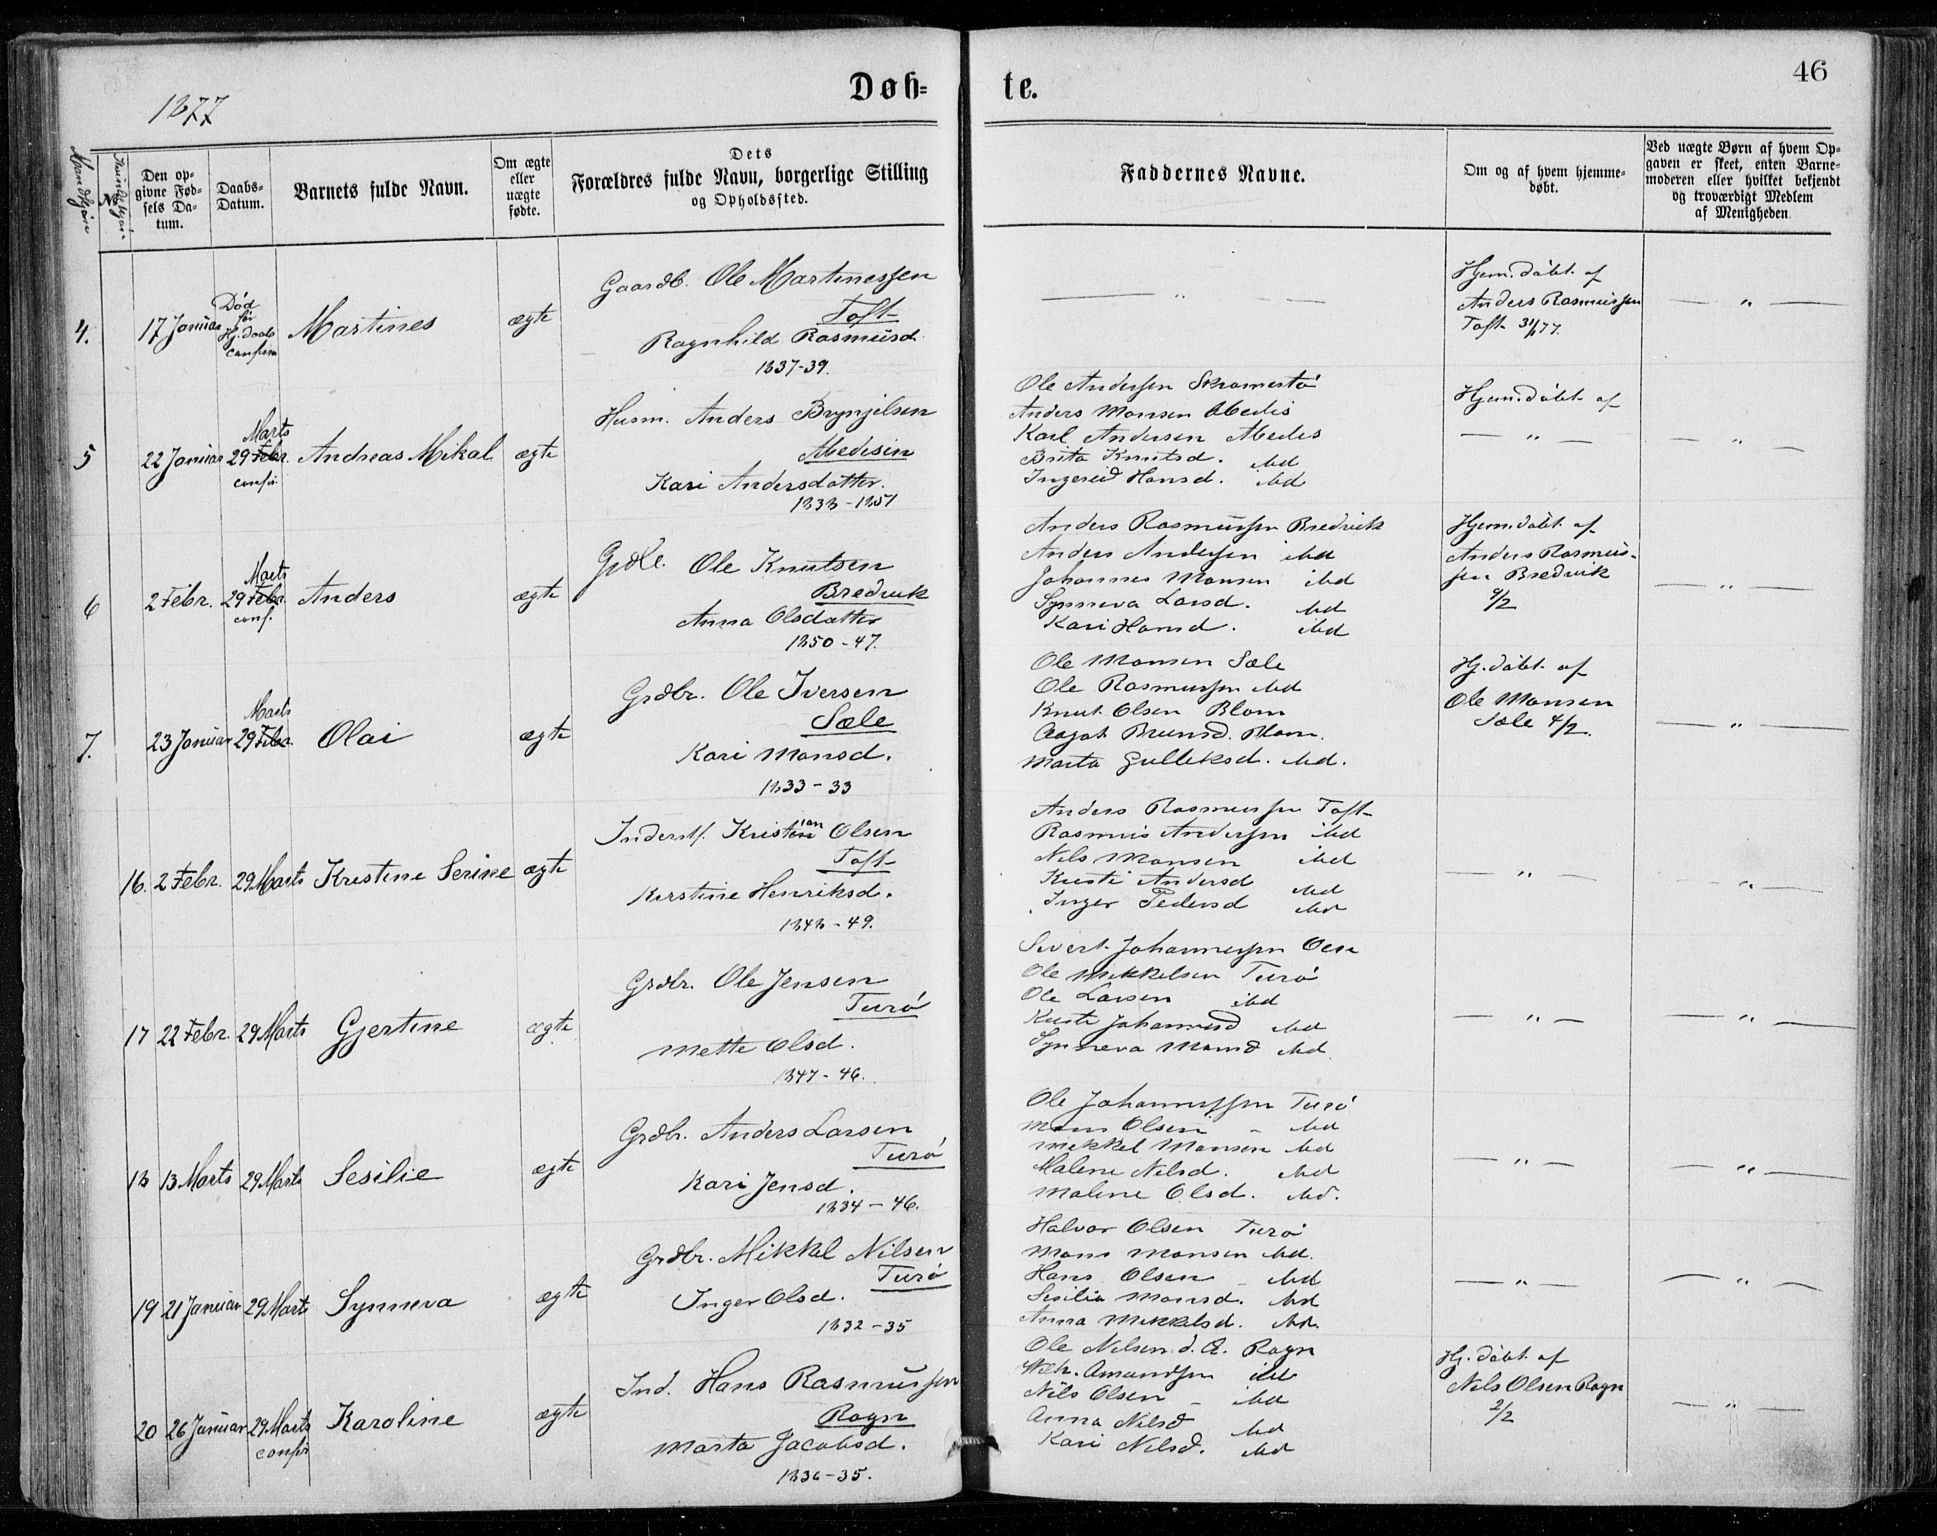 46
1877
Døb=
te.
Mandkjøn
No
Kvindekjøn
Den op-
givne Fød-
sels Da-
tum.
Daabs-
Datum.
Barnets fulde Navn.
Om ægte
eller
uægte
fødte.
Dets
Forældres fulde Navn, borgerlige Stilling
og Opholdssted.
Faddernes Navne.
Om og af hvem hjemme-
døbt.
Ved uægte Børn af hvem Op-
gaven er skeet, enten Barne-
moderen eller hvilket bekjendt
og troværdigt Medlem
af Menigheden.
4.
17 Januar
Død
før
Hj. daab
confirm
Martines
ægte
Gaardb. Ole Martinessen
Toft
Ragnhild Rasmusd.
1837-39.
— " —
Hjem. døbt af
Anders Rasmussen
Toft 31/1 77.
— " —
5
22 Januar
Marts
29 Febr.
confir
Andreas Mikal
ægte
Husm. Anders Brynjelsen
Medisin
Kari Andersdatter.
1838-1851
Ole Andersen Skramestø
Anders Monsen Medis
Karl Andersen Medes
Brita Knutsd. ibd
Ingereid Hansd. ibd
Hjem. døbt af
— " —
— " —
6
2 Febr.
Marts
29 Febr.
conf.
Anders
ægte
Ole Knutsen
Bredvik
Anna Olsdatter
1850-47.
Anders Rasmussen Bredvik
Anders Andersen ibd
Johannes Monsen ibd
Synneva Larsd. ibd
Kari Hansd. ibd
Hjem. døbt af
Anders Rasmus-
sen Bredvik
9/2
— " —
7.
23 Januar
Marts
29 Febr.
Olai
ægte
Grdbr. Ole Iversen
Sæle
Kari Monsd.
1833-33
Ole Monsen Sæle
Ole Rasmussen ibd
Knut Olsen Blom
Blom.
Marta Gulleksd. ibd.
Hj. døbt af
Ole Monsen
Sæle 4/2.
— " —
16.
2 Febr.
29 Marts
Kristine Serine
ægte
Inderst. Kristian Olsen
Toft
Kirstine Henriksd.
1848-49.
Anders Rasmussen Toft
Rasmus Andersen ibd
Nils Monsen ibd
Kristi Andersd ibd
Inger Pedersd ibd
— " —
— " —
17
22 Febr.
29 Marts
Gjertine
ægte
Grdbr. Ole Jensen
Turø
Mette Olsd.
1847-46.
Sivert Johannessen Oen
Ole Mikkelsen Turø
Ole Larsen ibd
Kristi Johannesd ibd
Synneva Monsd ibd
— " —
— " —
18
13 Marts
29 Marts
Sesilie
ægte
Grdbr. Anders Larsen
Turø
Kari Jensd.
1834-46.
Ole Johannessen Turø
Mons Olsen - ibd
Mikkel Monsen ibd
Malene Nilsd. ibd
Malene Olsd. ibd.
— " —
— " —
19
21 Januar
29 Marts
Synneva
ægte
Grdbr. Mikkel Nilsen
Turø
Inger Olsd.
1832-35
Halvor Olsen Turø
Mons Monsen ibd.
Hans Olsen - ibd
Sesilia Monsd. ibd
Anna Mikkelsd. ibd.
— " —
— " —
20
26 Januar
29 Marts
confir
Karoline
ægte
Ind. Hans Rasmussen
Rogn
Marta Jacobsd.
1836-35.
Ole Nilsen d. Æ. Rogn
Amundsen ibd
Nils Olsen - ibd
Anna Nilsd ibd
Kari Nilsd. ibd
Hj. døbt af
Nils Olsen Rogn
2/2
— " —